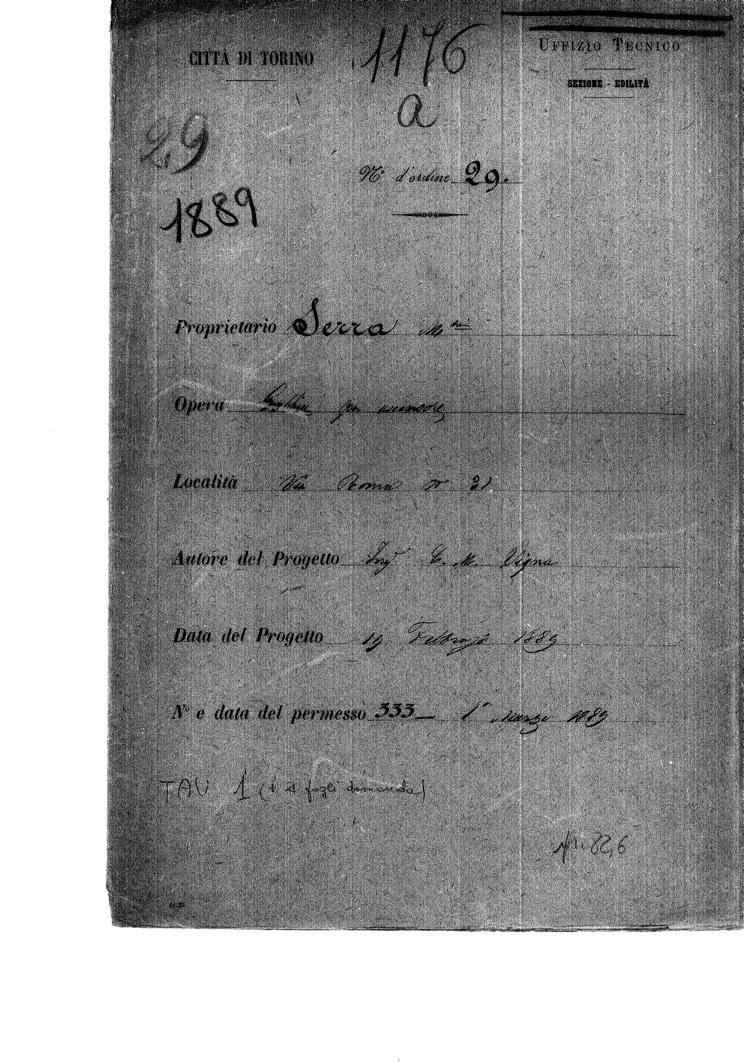 CITTÀ DI TORINO
1176
a
UFFIZIO TECNICO
SEZIONE - EDILITÀ
29
1889
N° d'ordine 29.
Proprietario Serra M
Opera per ascensore
Località Via Roma N° 31
Autore del Progetto Ing. C. M. Vigna
Data del Progetto 19 Febbraio 1889
N° e data del permesso 333 — 1° Marzo 1889
TAV 1 (+ 2 fogli domanda)